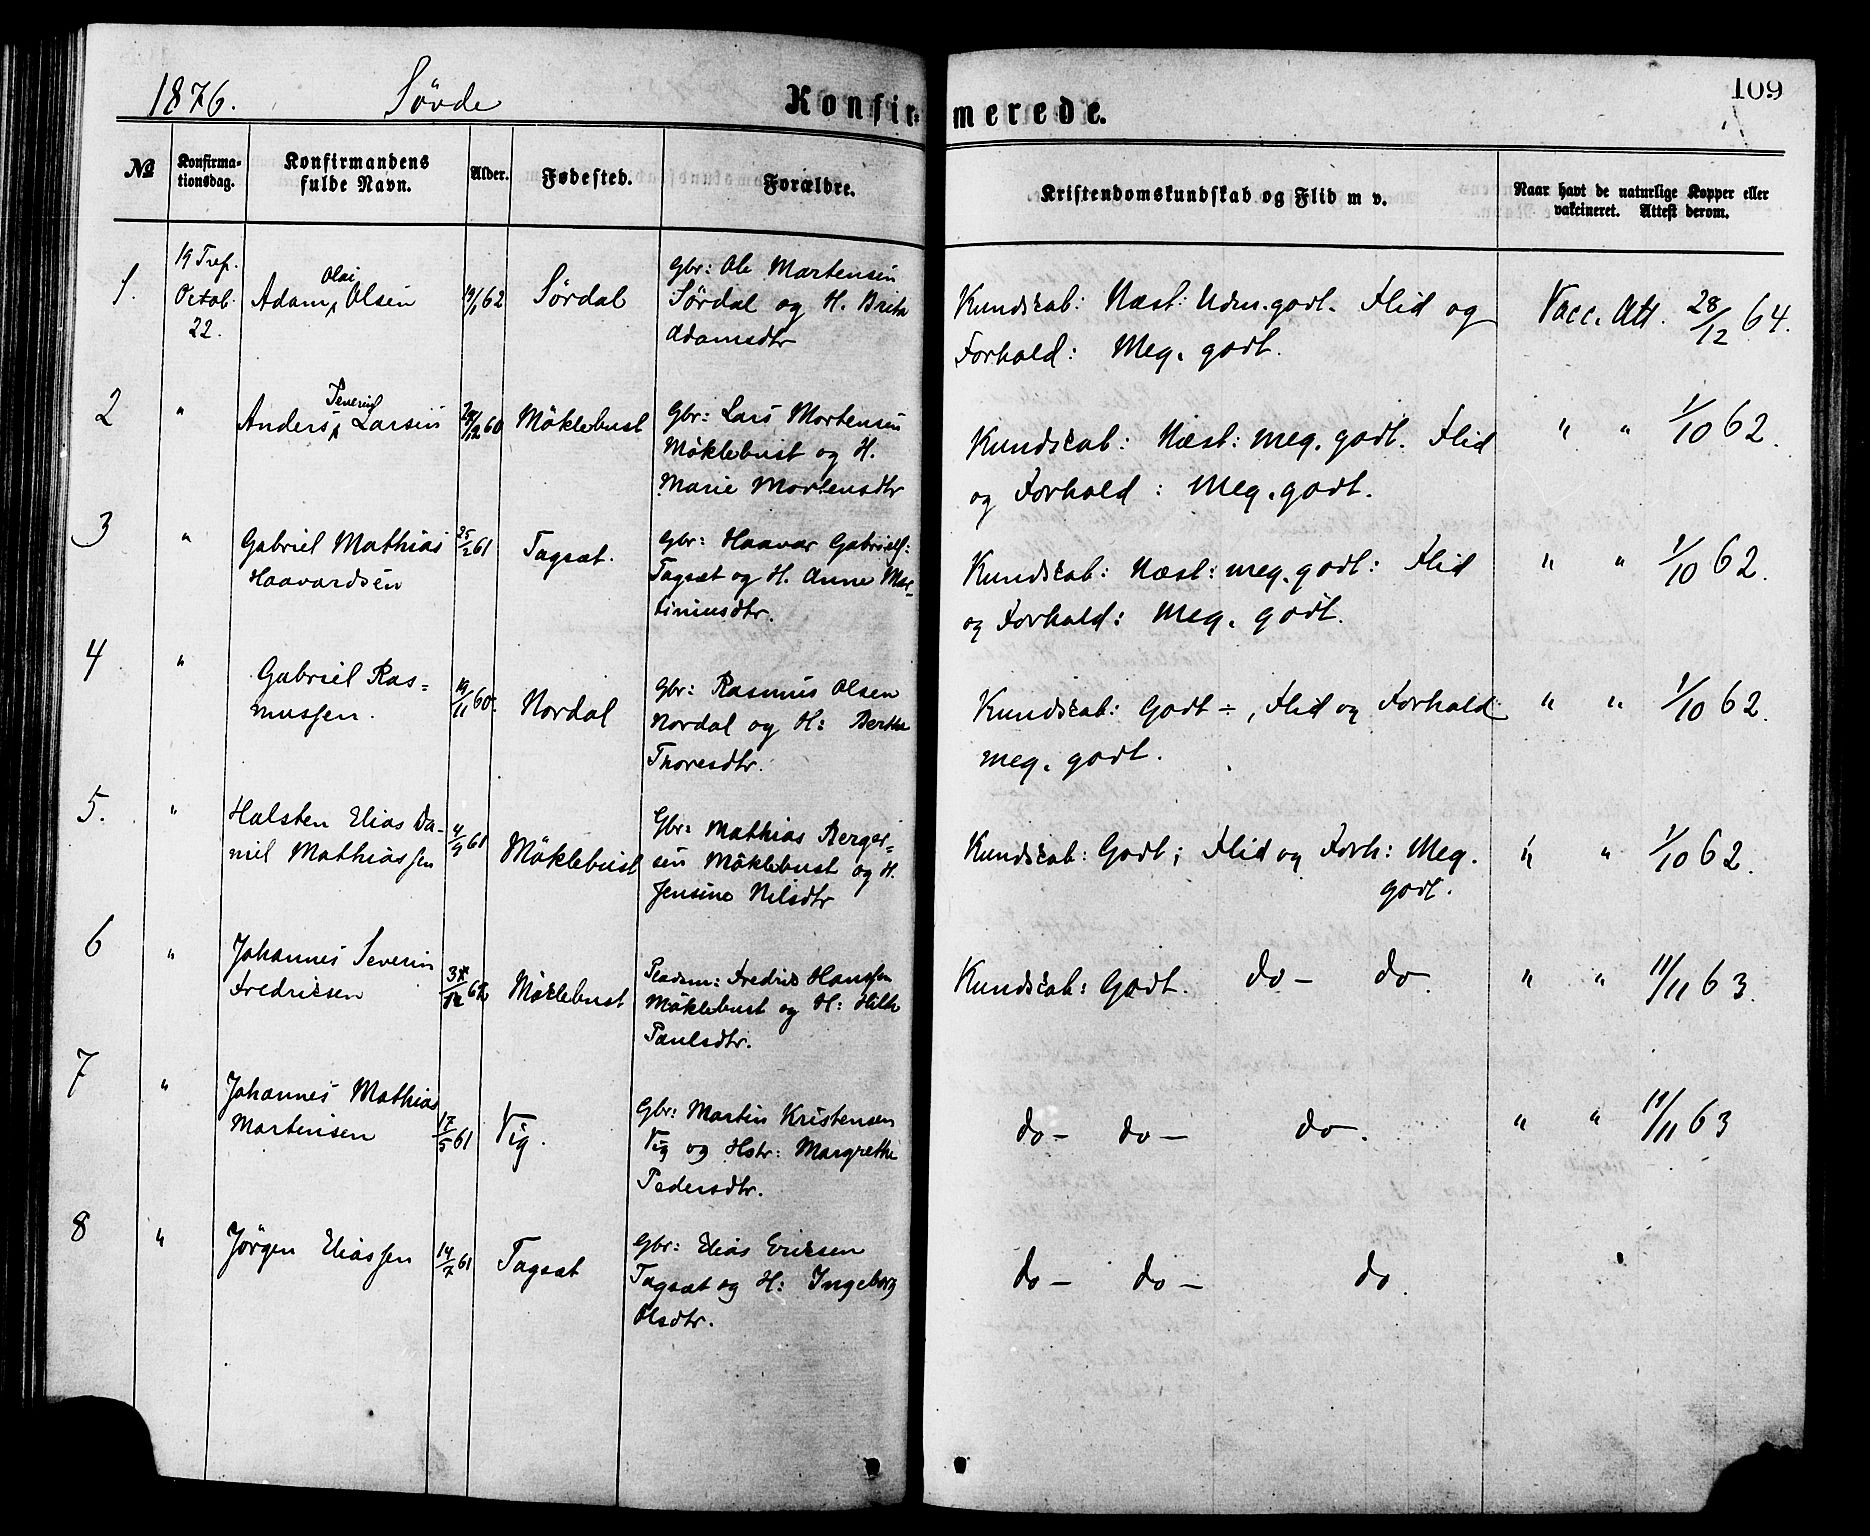 1876. Søvde Konfir= merede. 109
№ Konfirma-
tionsdag. Konfirmandens
fulde Navn. Alder. Fødested. Forældre. Kristendomskundskab og Flid m v. Naar havt de naturlige Kopper eller
vakcineret. Attest derom.
1. 19 Tref.
Octob.
22. Adam Olai Olsen 19/1 62 Sørdal Gbr: Ole Martensen
Sørdal og H. Brithe
Adamsdtr
Kundskab: Næst: Udm. godt. Flid og
Forhold: Meg. godt.
Vacc. Att. 28/12 64.
2 " Anders Severin Larsen 29/12 60 Möklebust Gbr: Lars Mortensen
Möklebust og H.
Marie Mortensdtr
Kundskab: Næst: meg. godt. Flid
og Forhold: Meg. godt.
" " 1/10 62.
3 " Gabriel Mathias
Haavardsen 25/2 61 Tagsæt. Gbr: Haavar Gabriels:
Tagsæt og H. Anne Mar=
tiniusdtr.
Kundskab: Næst: meg. godt: Flid
og Forhold: Meg. godt.
" " 1/10 62.
4 " Gabriel Ras=
mussen. 19/11 60. Nordal Gbr: Rasmus Olsen
Nordal og H: Berthe
Thoresdtr.
Kundskab: Godt ÷, Flid og Forhold
meg. godt.
" " 1/10 62.
5. " Halsten Elias Da-
niel Mathiassen 4/9 61 Möklebust Gbr: Mathias Berger=
sen Möklebust og H.
Jensine Nilsdtr
Kundskab: Godt; Flid og Forh: Meg.
godt.
" " 1/10 62.
6 " Johannes Severin
Fredriksen Möklebust Pladsm: Fredrik Hanssen
Möklebust og H:
Paulsdtr.
Kundskab: Godt. do – do.
" " 11/11 63.
7 " Johannes Mathias
Martinsen 17/5 61 Vig. Gbr: Martin Kristensen
Vig og Hstr: Margrethe
Pedersdtr.
do – do – do.
" " 11/11 63
8 " Jörgen Eliassen 14/7 61 Tagsæt Gbr: Elias Ericsen
Tagsæt og H: Ingeborg
Olsdtr.
do – do – do.